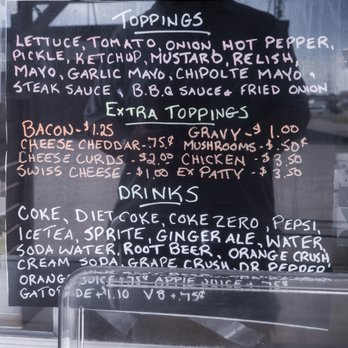 TOPPINGS
LETTUCE, TOMATO, ONION, HOT PEPPER,
PICKLE, KETCHUP, MUSTARD, RELISH,
MAYO, GARLIC MAYO, CHIPOLTE MAYO +
STEAK SAUCE + B.B.Q SAUCE + FRIED ONION
EXTRA TOPPINGS
BACON - $1.25 GRAVY - $1.00
CHEESE CHEDDAR - .75¢ MUSHROOMS - $.50¢
CHEESE CURDS - $2.00 CHICKEN - $3.50
SWISS CHEESE - $1.00 EX PATTY - $3.50
DRINKS
COKE, DIET COKE, COKE ZERO, PEPSI,
ICETEA, SPRITE, GINGER ALE, WATER,
SODA WATER, ROOT BEER, ORANGE CRUSH
CREAM SODA, GRAPE CRUSH, DR PEPPER,
ORANGE JUICE +.75¢ APPLE JUICE +.75¢
GATORADE +$1.10 V8 +.75¢